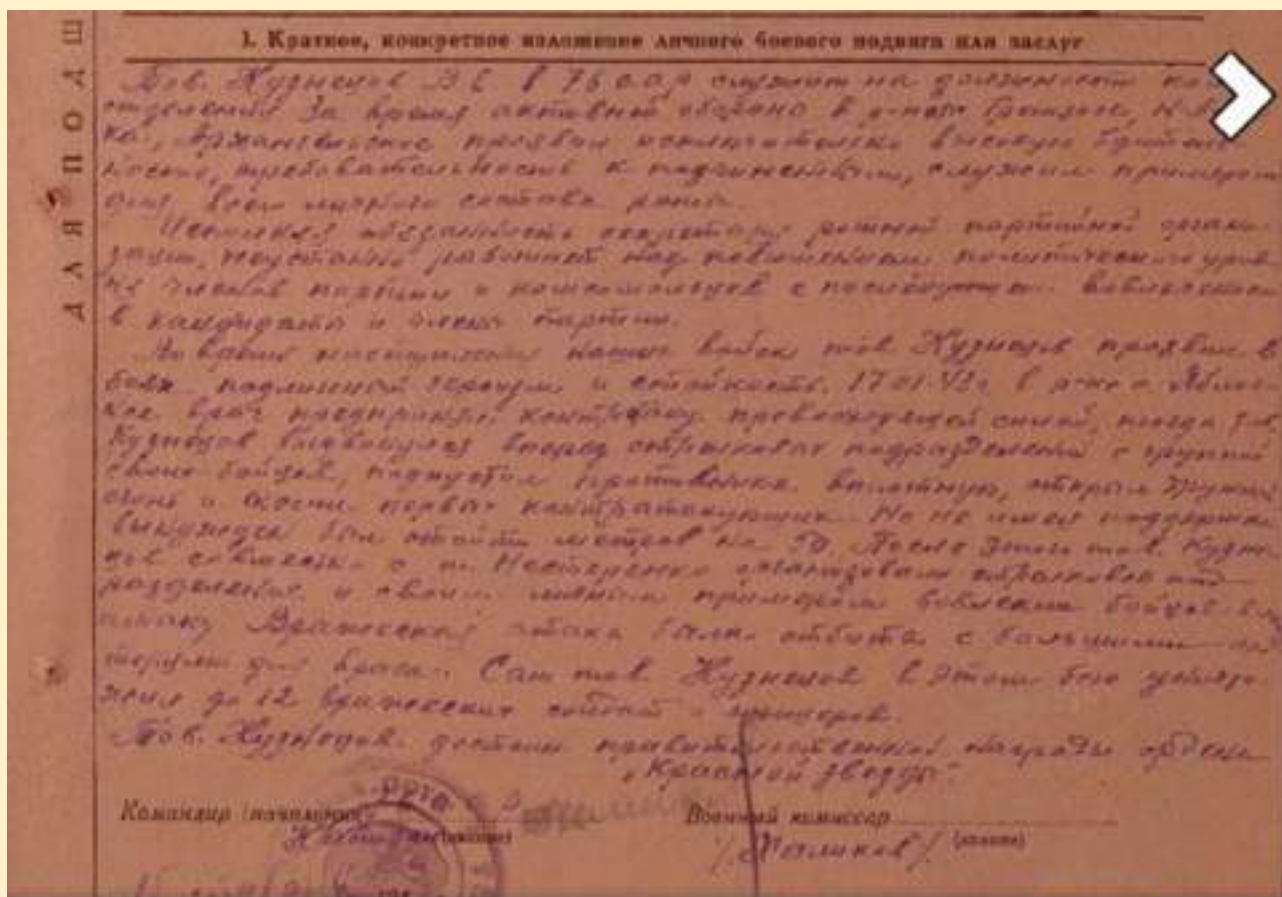 ДЛЯ ПОДШ
1. Краткое, конкретное изложение личного боевого подвига или заслуг
Тов. Кузнецов В.Е. в 76 о.о.р служит на должности
отделения За время активной обороны в р-не
Архангельское проявил исключительно высокую бдитель
ность, требовательность к подчиненным, служил примером
для всего личного состава роты.
Исполняя обязанность секретаря ротной партийной органи
зации, неустанно работает над повышением политического уров
ня членов партии и комсомольцев с последующем вовлечением
в кандидаты и члены партии.
Во время наступления наших войск тов Кузнецов проявил в
боях подлинный героизм и стойкость. 17.01.43г. в р-не
враг предпринял контратаку превосходящей силой, тогда тов.
Кузнецов выдвинулся вперед стрелковых подразделений с группой
своих бойцов, подпустил противника вплотную, открыл
огонь и скосил первых контратакующих. Но не имея поддержки
вынужден был отойти метров на 50. После этого тов. Кузне
цов совместно с т. Нестеренко организовали стрелковые под
разделения и своим личным примером вовлекли бойцов в
атаку Вражеская атака была отбита с большими по
терями для врага. Сам тов Кузнецов в этом бою уничто
жил до 12 вражеских солдат и офицеров.
Тов. Кузнецов достоин правительственной награды ордена
"Красной звезды".
Командир (начальник)
Военный комиссар
(звание)
(звание)